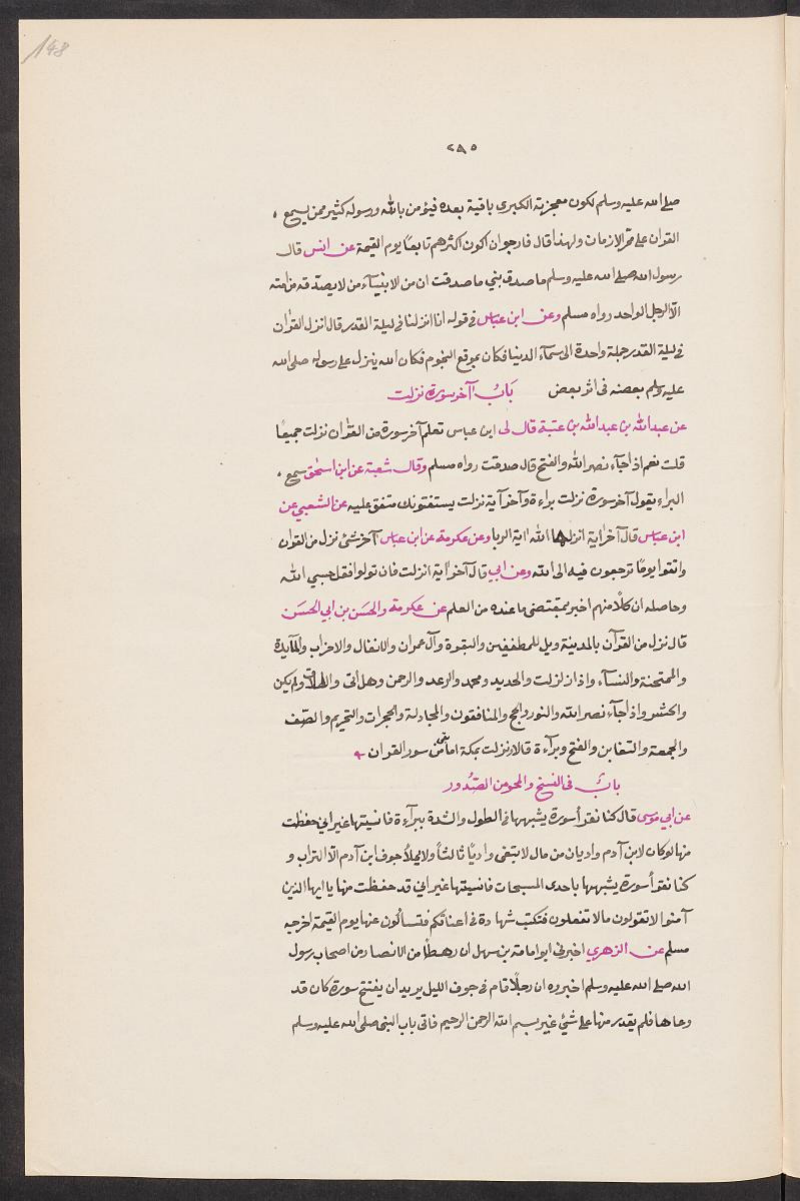 148
٢٩٥
صلى الله عليه وسلم لكون معجزته الكبرى باقية بعده فيؤمن بالله ورسوله كثير ممن يسمع
القران على ممر الازمان ولهذا قال فارجوان اكون اكثرهم تابعًا يوم القيمة عن انس قال
رسول الله صلى الله عليه وسلم ما صدق نبي ما صدقت ان من الانبيآء من لا يصدّقه من امته
الّا الرجل الواحد رواه مسلم وعن ابن عباس في قوله انا انزلنا في ليلة القدر قال انزل القرٰان
في ليلة القدر جملة واحدة الى سمآء الدينا فكان بموقع النجوم فكان الله ينزل على رسوله صلى الله
عليه وسلم بعضه فى اثر بعض بَابُ آخر سورة نزلت
عن عبدالله بن عبدالله بن عتبة قال لى ابن عباس تعلم آخر سورة من القرٰان نزلت جميعًا
قلت نعم اذا جآء نصر الله والفتح قال صدقت رواه مسلم وقال شعبة عن ابن اسحٰق سمع
البراء يقول آخر سورة نزلت براءة وآخر آية نزلت يستفتونك متفق عليه عن الشعبي عن
ابن عباس قال آخر اية انزلها الله اية الربا وعن عكرمة عن ابن عباس آخر شئ نزل من القران
واتقوا يومًا ترجعون فيه الى الله وعن ابي قال آخر اية انزلت فان تولوا فقل حسبي الله
وحاصله ان كلًا منهم اخبر بمقتضى ما عنده من العلم عن عكرمة والحسَن بن ابي الحسَن
قال نزل من القرآن بالمدينة ويل للمطففين والبقرة وآل عمران والانفال والاحزاب والمآيدة
والممتحنة والنسآء واذا زلزلت والحديد ومحمد والرعد والرحمن وهل اتى والطلاق ولم يكن
والحشر واذا جآء نصر الله والنور والحج والمنافقون والمجادلة والحجرات والتحريم والصّف
والجمعة والتغابن والفتح وبرآءة قالا نزلت بمكة سور القران
باب فى النسخ والمحو من الصّدُور
عن ابي موسى قال كنا نقرأ سورة يشبهها فى الطول والشدة ببرآءة فانسيتها غير اني حفظت
منها لو كان لابن آدم واديان من مال لابتغى واديًا ثالثاً ولا يملأ جوف ابن آدم الّا التراب و
كنا نقرأ سورة يشبهها باحدى المسبحات فانسيتها غير اني قد حفظت منها يا ايها الذين
آمنوا لا تقولون ما لا تفعلون فتكتب شهادة فى اعناقكم فتسألون عنها يوم القيمة اخرجه
مسلم عن الزهري اخبرني ابو امامة بن سهل ان رهطًا من الانصار من اصحاب رسول
الله صلى الله عليه وسلم اخبروه ان رجلًا قام فى جوف الليل يريد ان يفتتح سورة كان قد
وعاها فلم يقدر منها على شئ غير بسم الله الرحمن الرحيم فاتى باب النبى صلى الله عليه وسلم